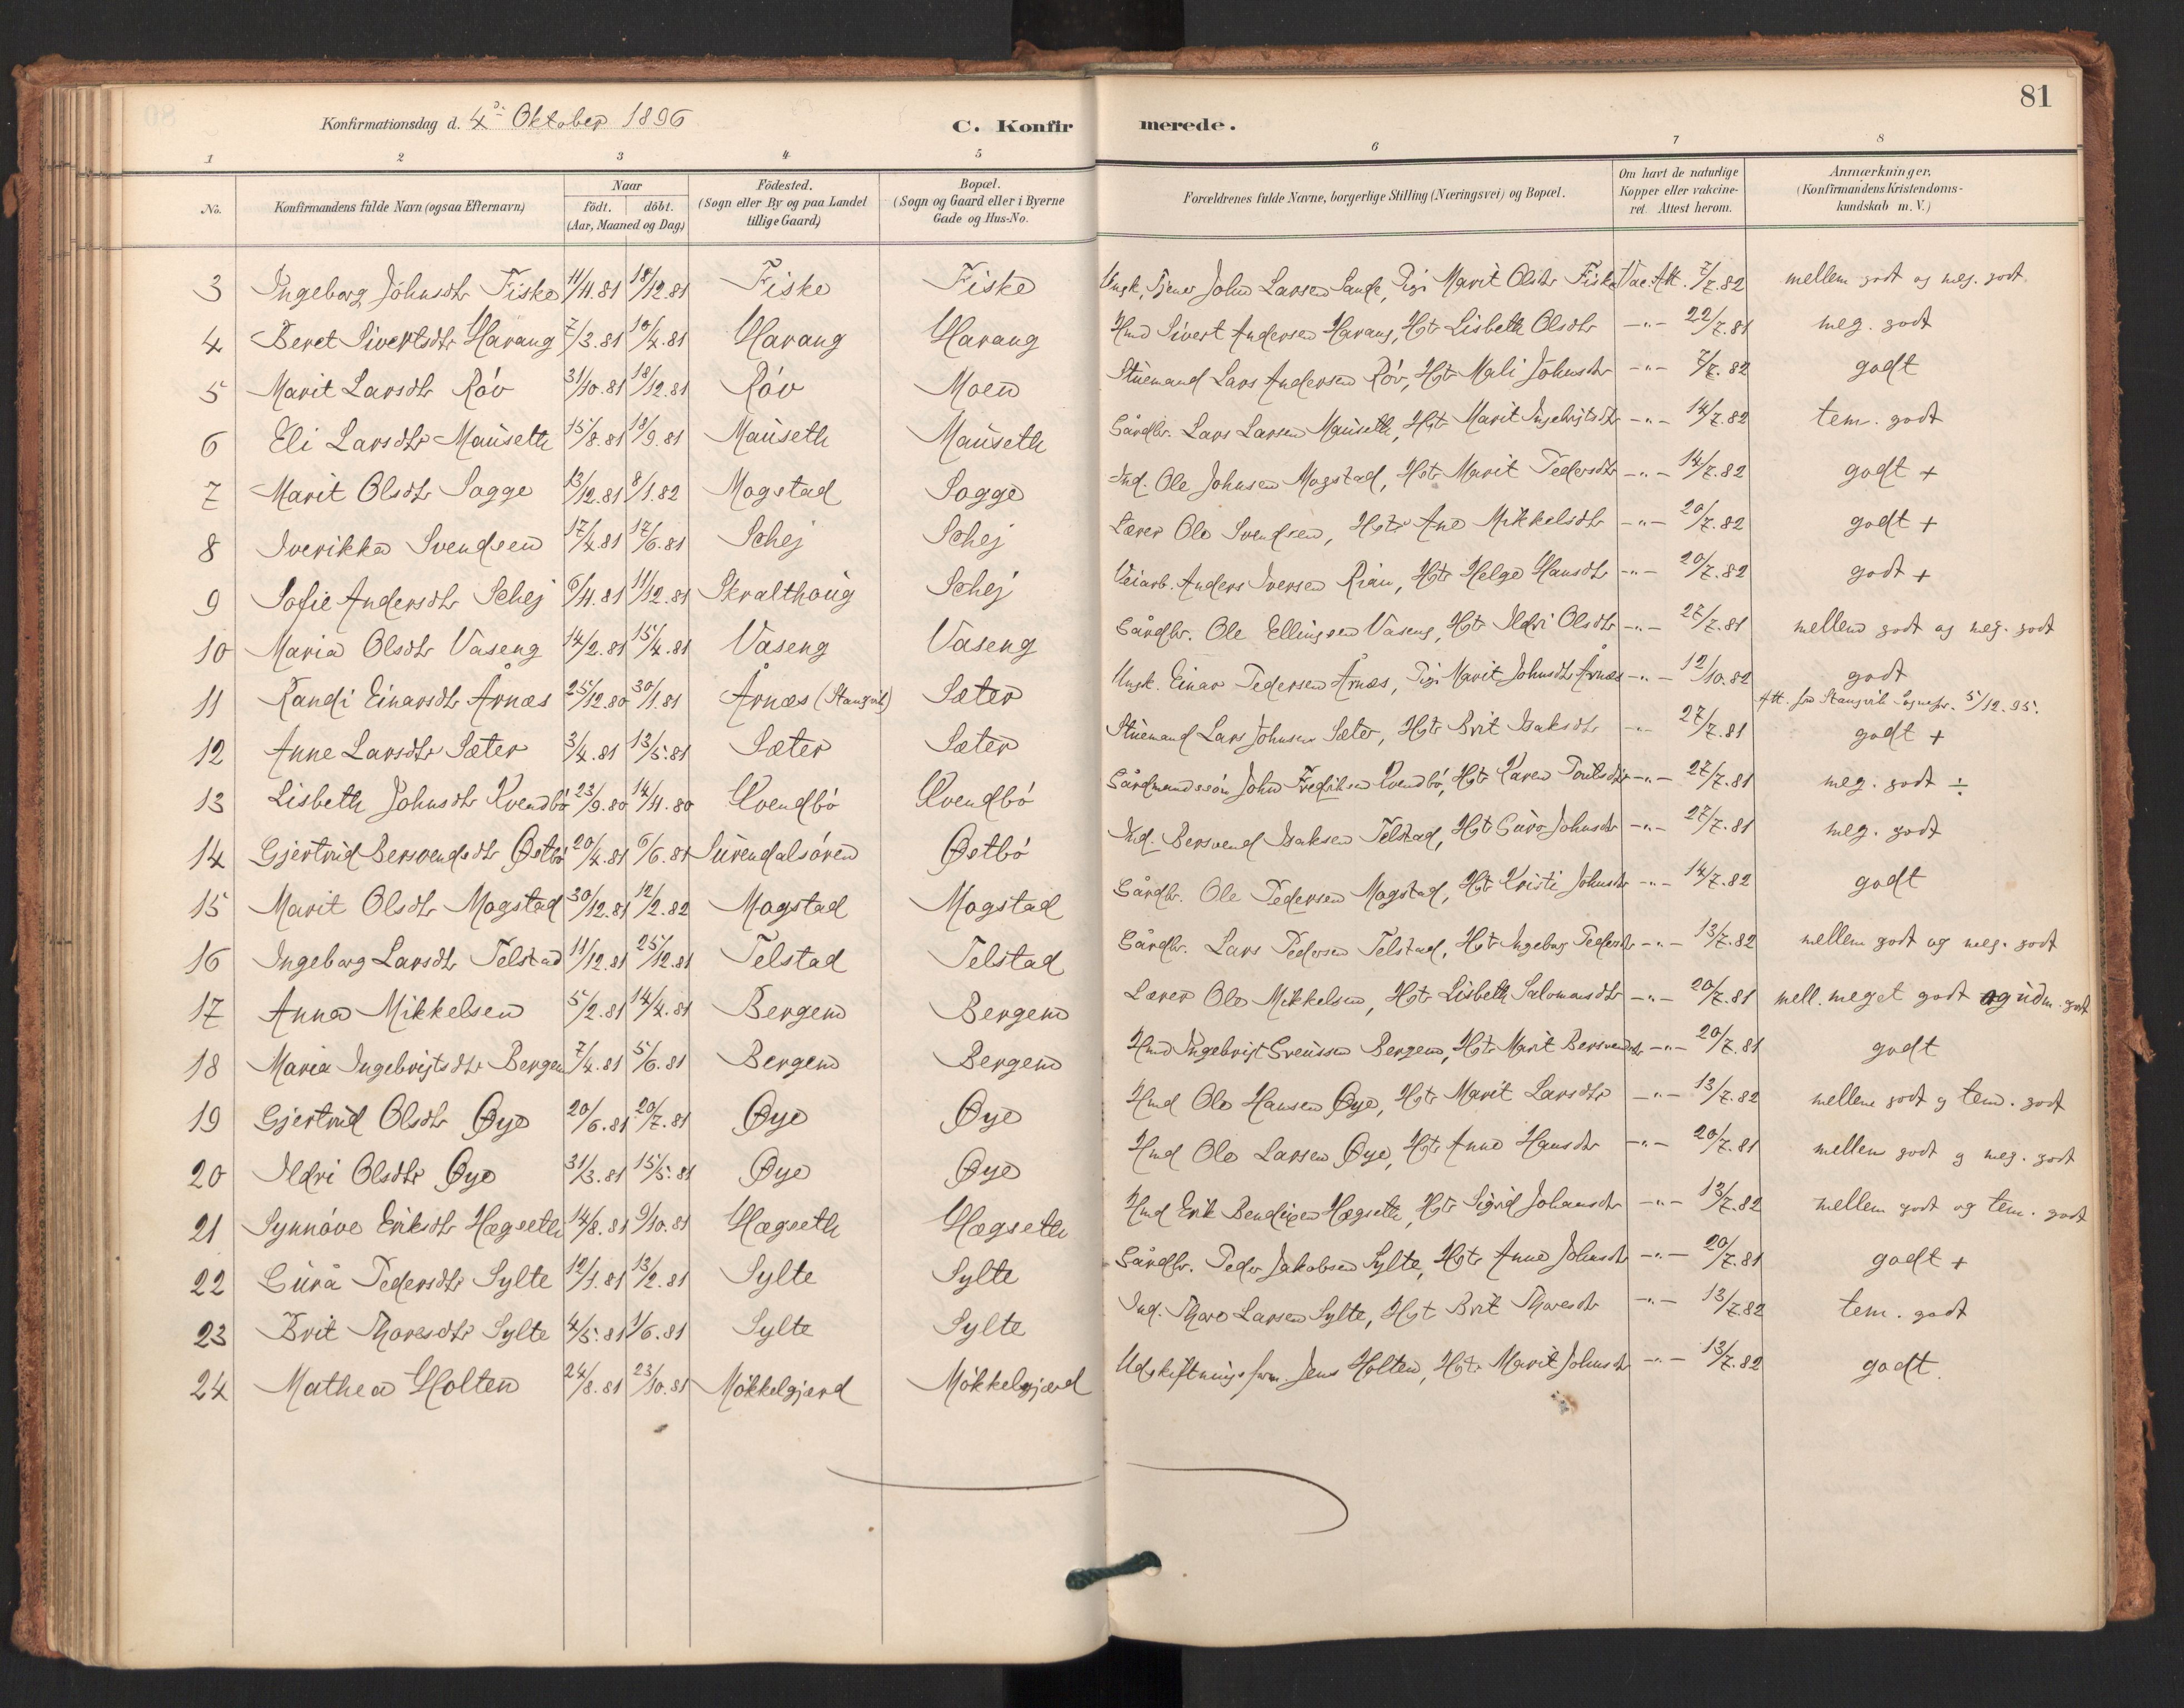 81
Konfirmationsdag d. 4de Oktober 1896 C. Konfirmerede.
1 2 3 4 5 6 7 8
No. Konfirmandens fulde Navn (ogsaa Efternavn) Naar födt. döbt. (Aar, Maaned og Dag) Födested. (Sogn eller By og paa Landet tillige Gaard) Bopæl. (Sogn og Gaard eller i Byerne Gade og Hus-No. Forældrenes fulde Navne, borgerlige Stilling (Næringsvei) og Bopæl. Om havt de naturlige Kopper eller vakcineret. Attest herom. Anmærkninger. (Konfirmandens Kristendomskundskab m.V.)
3 Ingeborg Johnsdtr Fiske 11/11.81 18/12.81 Fiske Fiske Ungk., Tjener John Larsen Sande, Pige Marit Olsdtr Fiske Vac. Att. 7/7.82 mellem godt og meg. godt
4 Beret Sivertsdtr Harang 7/3.81 10/4.81 Harang Harang Hmd Sivert Andersen Harang, Hgtr Lisbeth Olsdtr -"- 22/7.81 meg. godt
5 Marit Larsdtr Röv 31/10.81 18/12.81 Röv Moen Stuemand Lars Andersen Röv, Hgtr Mali Johnsdtr -"- 7/7.82 godt
6 Eli Larsdtr Mauseth 15/8.81 18/9.81 Mauseth Mauseth Gårdbr. Lars Larsen Mauseth, Hgtr Marit Ingebrigtsdtr -"- 14/7.82 tem. godt
7 Marit Olsdtr Sogge 13/12.81 8/1.82 Mogstad Sogge Ind. Ole Johnsen Mogstad, Hgtr Marit Pedersdtr -"- 14/7.82 godt +
8 Iverikka Svendsen 17/4.81 17/6.81 Schej Schej Lærer Ole Svendsen, Hgtr Ane Mikkelsdtr -"- 20/7.82 godt +
9 Sofie Andersdtr Schej 6/11.81 11/12.81 Skralthoug Schej Veiarb. Anders Iversen Rian, Hgtr Helge Hansdtr -"- 20/7.82 godt +
10 Maria Olsdtr Vaseng 14/2.81 15/4.81 Vaseng Vaseng Gårdbr. Ole Ellingsen Vaseng, Hgtr Ildri Olsdtr -"- 27/7.81 mellem godt og meg. godt
11 Randi Einarsdtr Årnæs 25/12.80 30/1.81 Årnæs (Stangvik) Sæter Ungk. Einar Pedersen Årnæs, Pige Marit Johnsdtr Årnæs -"- 12/10.82 godt
Att. fra Stangvik Sognepr. 5/12.95.
12 Anne Larsdtr Sæter 3/4.81 13/5.81 Sæter Sæter Stuemand Lars Johnsen Sæter, Hgtr Brit Isaksdtr -"- 27/7.81 godt +
13 Lisbeth Johnsdtr Kvendbö 23/9.80 14/11.80 Kvendbö Kvendbö Gårdmandssön John Fredriksen Kvendbö, Hgtr Karen Poulsdtr -"- 27/7.81 meg. godt ÷
14 Gjertrud Bersvendsdtr Østbö 20/4.81 6/6.81 Surendalsören Østbö Ind. Bersvend Isaksen Telstad, Hgtr Guro Johnsdtr -"- 27/7.81 meg. godt
15 Marit Olsdtr Mogstad 30/12.81 12/2.82 Mogstad Mogstad Gårdbr. Ole Pedersen Mogstad, Hgtr Kristi Johnsdtr -"- 14/7.82 godt
16 Ingeborg Larsdtr Telstad 11/12.81 25/12.81 Telstad Telstad Gårdbr. Lars Pedersen Telstad, Hgtr Ingeborg Pedersdtr -"- 13/7.82 mellem godt og meg. godt
17 Anna Mikkelsen 5/2.81 14/4.81 Bergem Bergem Lærer Ole Mikkelsen, Hgtr Lisbeth Salomonsdtr -"- 20/7.81 mell. meget godt og udm. godt
18 Maria Ingebrigtsdtr Bergem 7/4.81 5/6.81 Bergem Bergem Hmd Ingebrigt Sveinssen Bergem, Hgtr Marit Bersvendsdtr -"- 20/7.81 godt
19 Gjertrud Olsdtr Øye 20/6.81 20/7.81 Øye Øye Hmd Ole Hansen Øye, Hgtr Marit Larsdtr -"- 13/7.82 mellem godt og tem. godt
20 Ildri Olsdtr Øye 31/3.81 15/5.81 Øye Øye Hmd Ole Larsen Øye, Hgtr Anne Hansdtr -"- 20/7.81 mellem godt og meg. godt
21 Synnöve Eriksdtr Hægseth 14/8.81 9/10.81 Hægseth Hægseth Hmd Erik Bendixen Hægseth, Hgtr Sigrid Johansdtr -"- 13/7.82 mellem godt og tem. godt
22 Gurå Pedersdtr Sylte 12/1.81 13/2.81 Sylte Sylte Gårdbr. Peder Jakobsen Sylte, Hgtr Anne Johnsdtr -"- 20/7.81 godt +
23 Brit Thoresdtr Sylte 4/5.81 1/6.81 Sylte Sylte Ind. Thore Larsen Sylte, Hgt Brit Thoresdtr -"- 13/7.82 tem. godt
24 Mathea Holten 24/8.81 23/10.81 Mökkelgjærd Mökkelgjærd Udskiftningsform. Jens Holten, Hgtr Marit Johnsdtr -"- 13/7.82 godt.